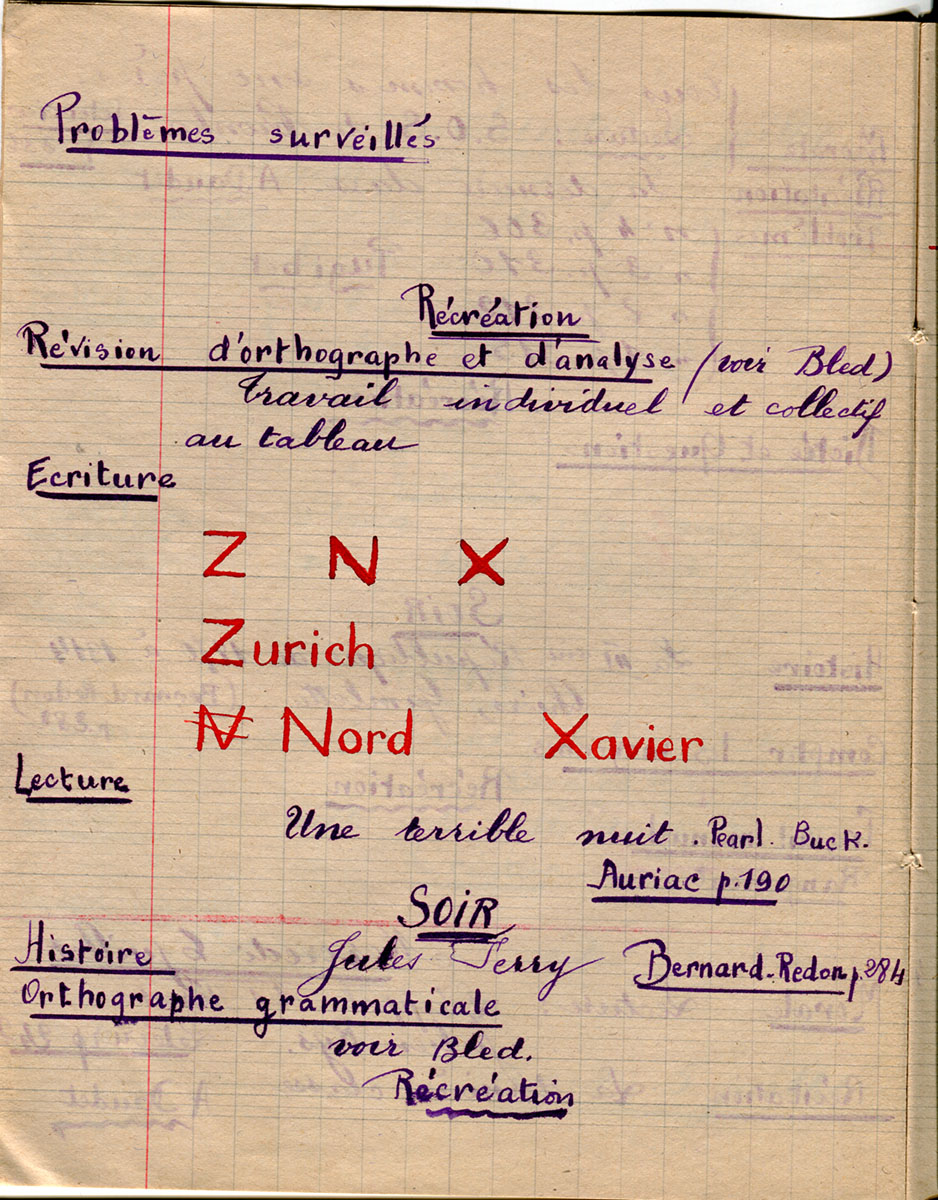 Problèmes surveillés
Récréation
Révision d'orthographe et d'analyse (voir Bled)
Travail individuel et collectif
au tableau
Ecriture
Z N X
Zurich
N Nord Xavier
Lecture
Une terrible nuit. Pearl. Buck.
Auriac p.190
SOIR
Histoire Jules Ferry Bernard-Redon p.284
Orthographe grammaticale
voir Bled.
Récréation